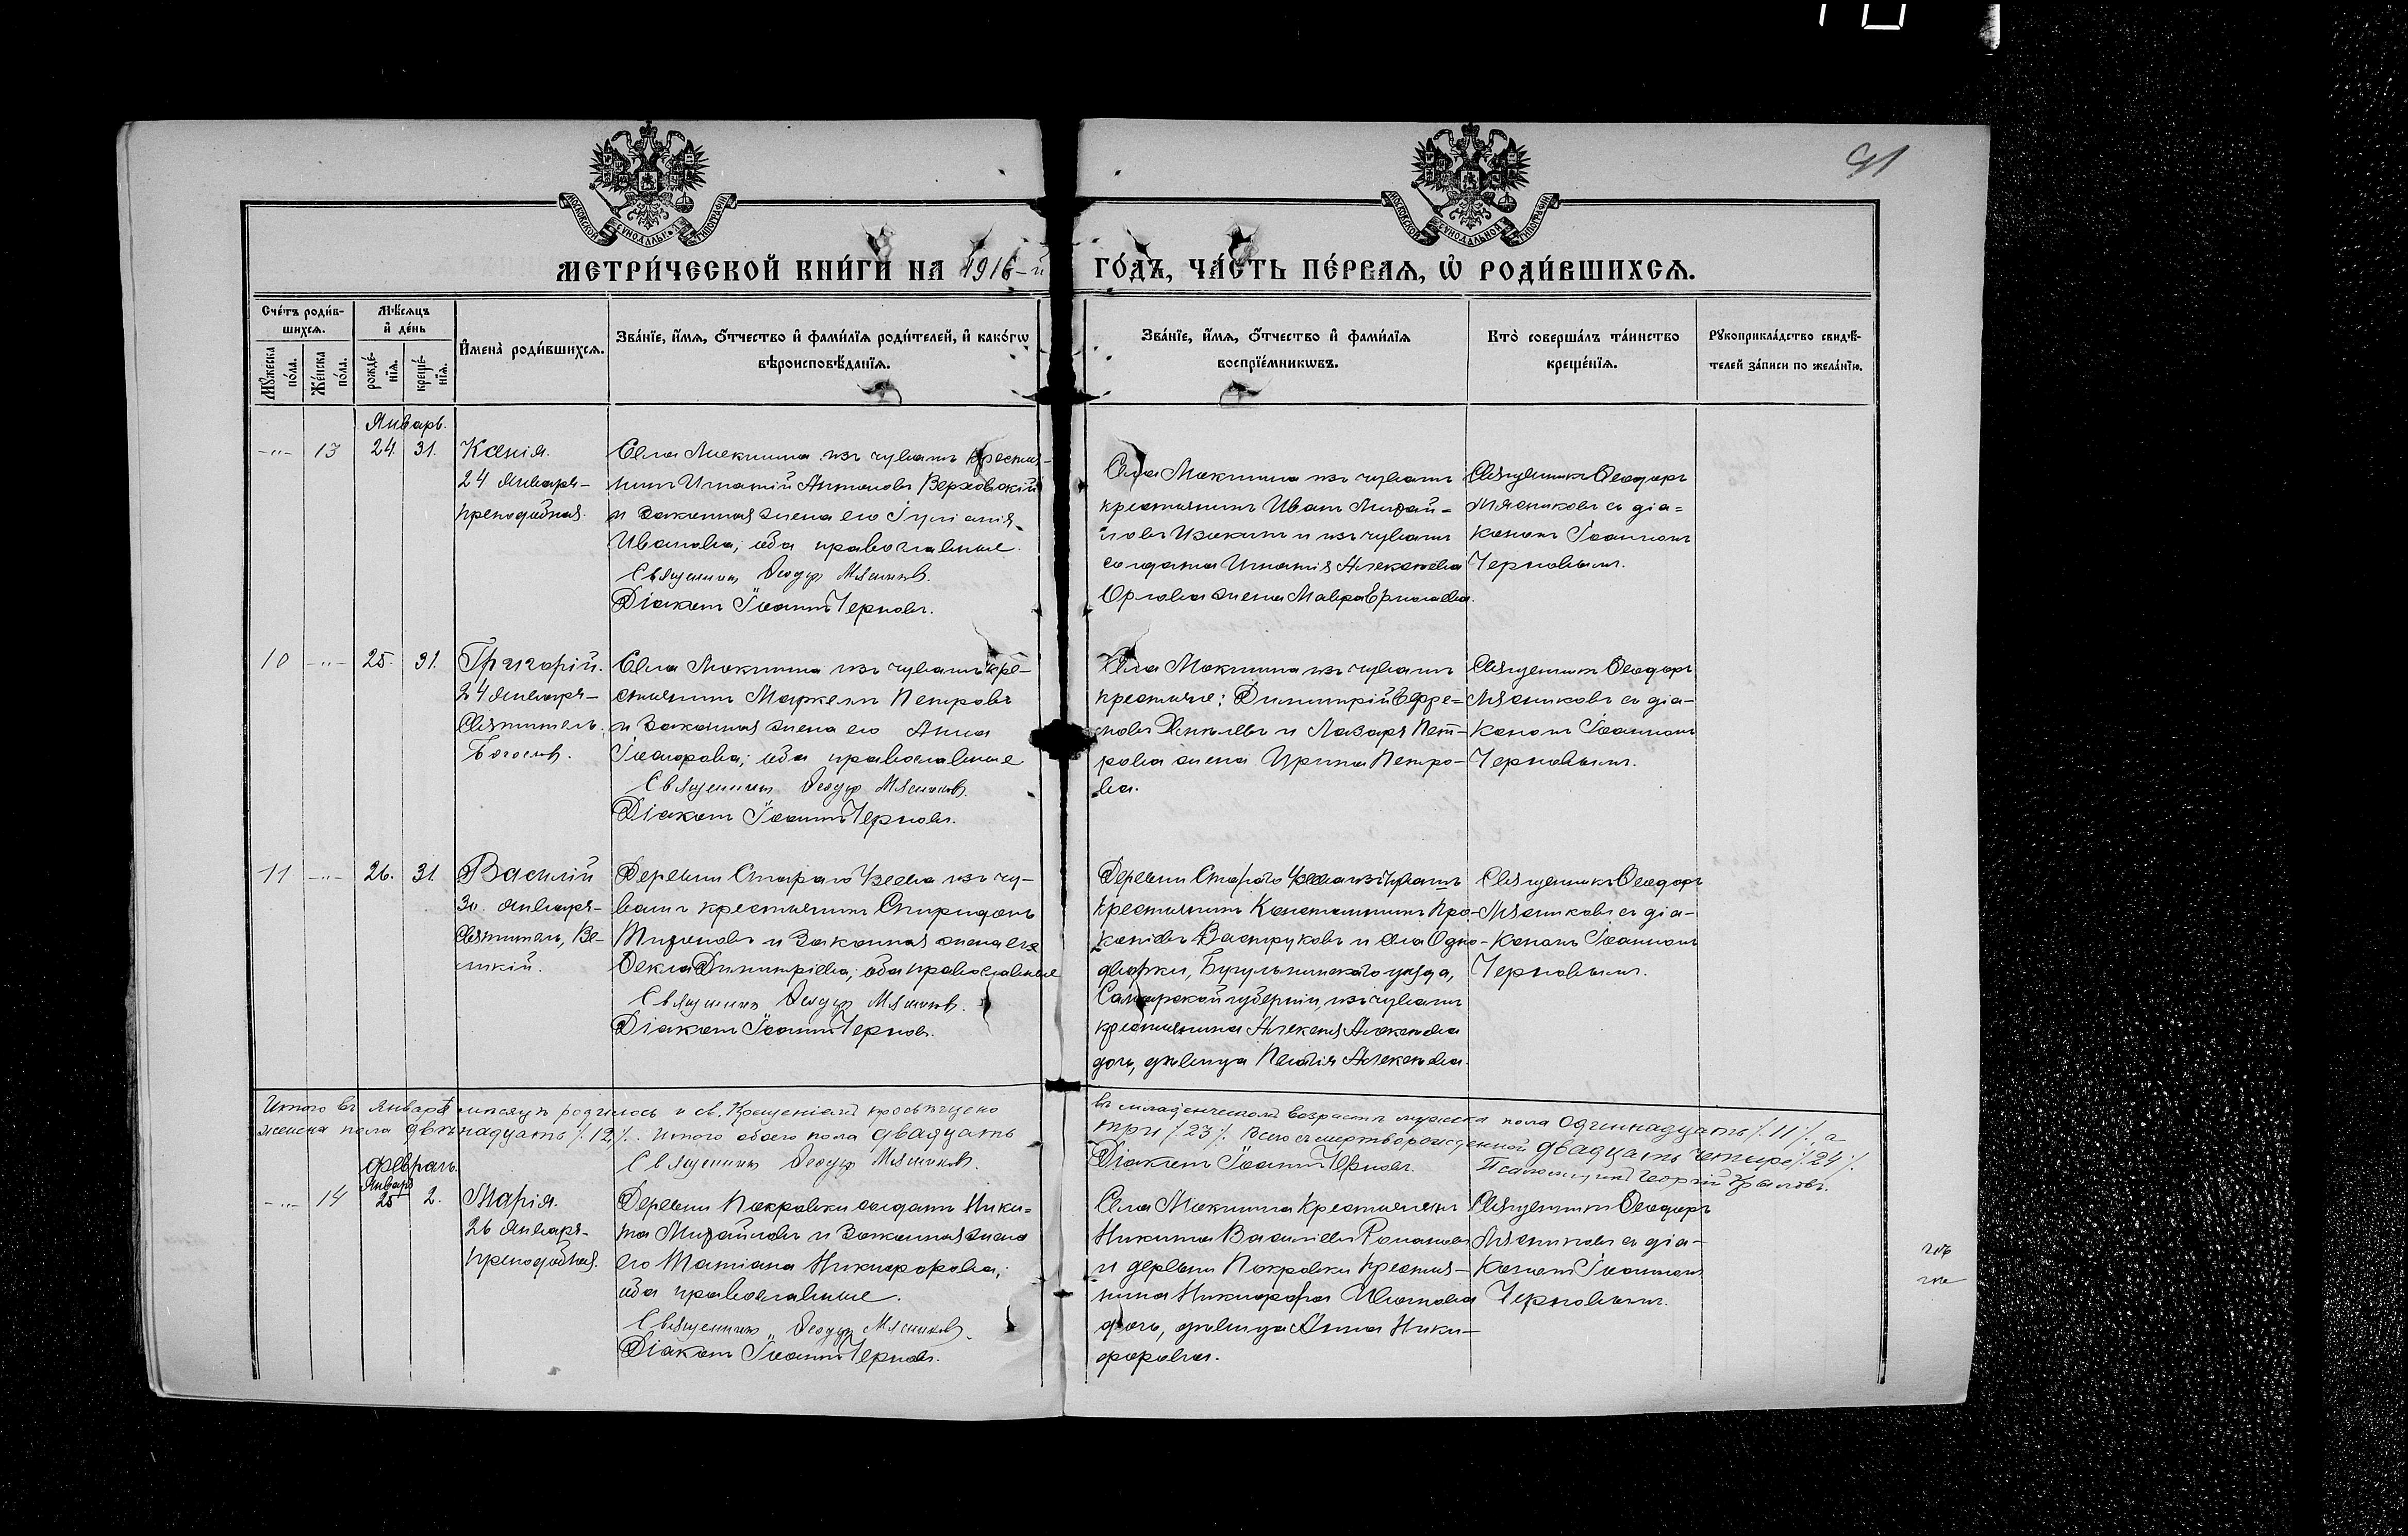 91
МОСКОВСКОЙ СѴНОДАЛЬНОЙ ТИПОГРАФІИ
МОСКОВСКОЙ СѴНОДАЛЬНОЙ ТИПОГРАФІИ
МЕТРИ́ЧЕСКОЙ КНИ́ГИ НА 1916-й ГО́ДЪ, ЧА́СТЬ ПЕ́РВАЯ, Ѡ РОДИ́ВШИХСЯ.
Сче́тъ роди́вшихся.
Мѣ́сяцъ и де́нь
Имена̀ роди́вшихся.
Зва́нїе, и́мя, о́тчество и фами́лїя роди́телей, и како́гѡ
вѣроисповѣ́данїя.
Зва́нїе, и́мя, о́тчество и фами́лїя
воспрїе́мникѡвъ.
Кто̀ соверша́лъ та́инство
креще́нїя.
Рꙋкоприкла́дство свидѣ́-
телей за́писи по жела́нїю.
Мꙋ́жеска по́ла.
Же́нска по́ла.
рожде́-
нїя.
креще́-
нїя.
Январь.
-"- 13 24. 31.
Ксенія.
24 Января-
преподобная.
Села Мокшина изъ чувашъ крестья-
нинъ Игнатій Антоновъ Верховскій
и законная жена его Іуліанія
Иванова; оба православные.
Священникъ Ѳеодоръ Мясниковъ.
Діаконъ Іоаннъ Черновъ.
Села Мокшина изъ чувашъ
крестьянинъ Иванъ Михай-
ловъ и изъ чувашъ
солдата Игнатія Алексѣева
Орлова жена Мавра
Священникъ Ѳеодоръ
Мясниковъ съ діа=
кономъ Іоанномъ
Черновымъ.
10 -"- 25. 31.
Григорій.
24 Января-
Святитель.
Богослов.
Села Мокшина изъ чувашъ кре-
стьянинъ Маркелъ Петровъ
и законная жена его Анна
оба православные
Священникъ Ѳеодоръ Мясниковъ.
Діаконъ Іоаннъ Черновъ.
Села Мокшина изъ чувашъ
крестьяне: Димитрій Ефре=
мовъ и Лазаря Пет-
рова жена Ирина Петро-
ва.
Священникъ Ѳеодоръ
Мясниковъ съ діа-
кономъ Іоанномъ
Черновымъ.
11 -"- 26. 31.
Василій
30. Января-
Святитель, Ве-
ликій.
Деревни Стараго Узеева изъ чу-
вашъ крестьянинъ Спиридонъ
Тихоновъ и законная жена его
Ѳекла Димитріева; оба православные
Священникъ Ѳеодоръ Мясниковъ.
Діаконъ Іоаннъ Черновъ.
Деревни Стараго Узеева изъ чувашъ
крестьянинъ Константинъ Про-
копіевъ Вастуковъ и села Одно-
дворки, Бугульминскаго уѣзда,
Самарской губерніи, изъ чувашъ
крестьянина Алексѣя Алексѣева
дочь, дѣвица Пелагія Алексѣева.
Священникъ Ѳеодоръ
Мясниковъ съ діа-
кономъ Іоанномъ
Черновымъ.
Итого въ Январѣ мѣсяцѣ родилось и св. Крещеніемъ просвѣщено въ младенческомъ возрастѣ мужеска пола одиннадцать /.11/., а
женска пола двѣнадцать /.12/. Итого обоего пола двадцать три /.23/. Всего съ мертворожденной двадцать четыре /.24/.
Священникъ Ѳеодоръ Мясниковъ. Діаконъ Іоаннъ Черновъ. Псаломщикъ Георгій Крыловъ.
Февраль.
Январ
-"- 14 25 2.
Марія.
26 Января-
преподобная.
Деревни Покровки солдатъ Ники=
та Михайловъ и законная жена
его Татіана Никифорова;
оба православные.
Священникъ Ѳеодоръ Мясниковъ.
Діаконъ Іоаннъ Черновъ.
Села Мокшина крестьянинъ
Никита Василіевъ Романовъ
и деревни Покровки крестья-
нина Никифора Иванова
дочь, дѣвица Анна Ники-
форова.
Священникъ Ѳеодоръ
Мясниковъ съ діа-
кономъ Іоанномъ
Черновымъ.